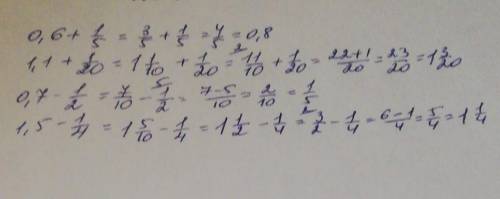 0,6 + 1/5 = 3/5 + 1/5 = 4/5 = 0,8
1,1 + 1/20 = 1 1/10 + 1/20 = 11/10 ² + 1/20 = 22+1/20 = 23/20 = 1 3/20
0,7 - 1/2 = 7/10 - 1/2 ⁵ = 7-5/10 = 2/10 = 1/5
1,5 - 1/4 = 1 5/10 - 1/4 = 1 1/2 - 1/4 = 3/2 ² - 1/4 = 6-1/4 = 5/4 = 1 1/4